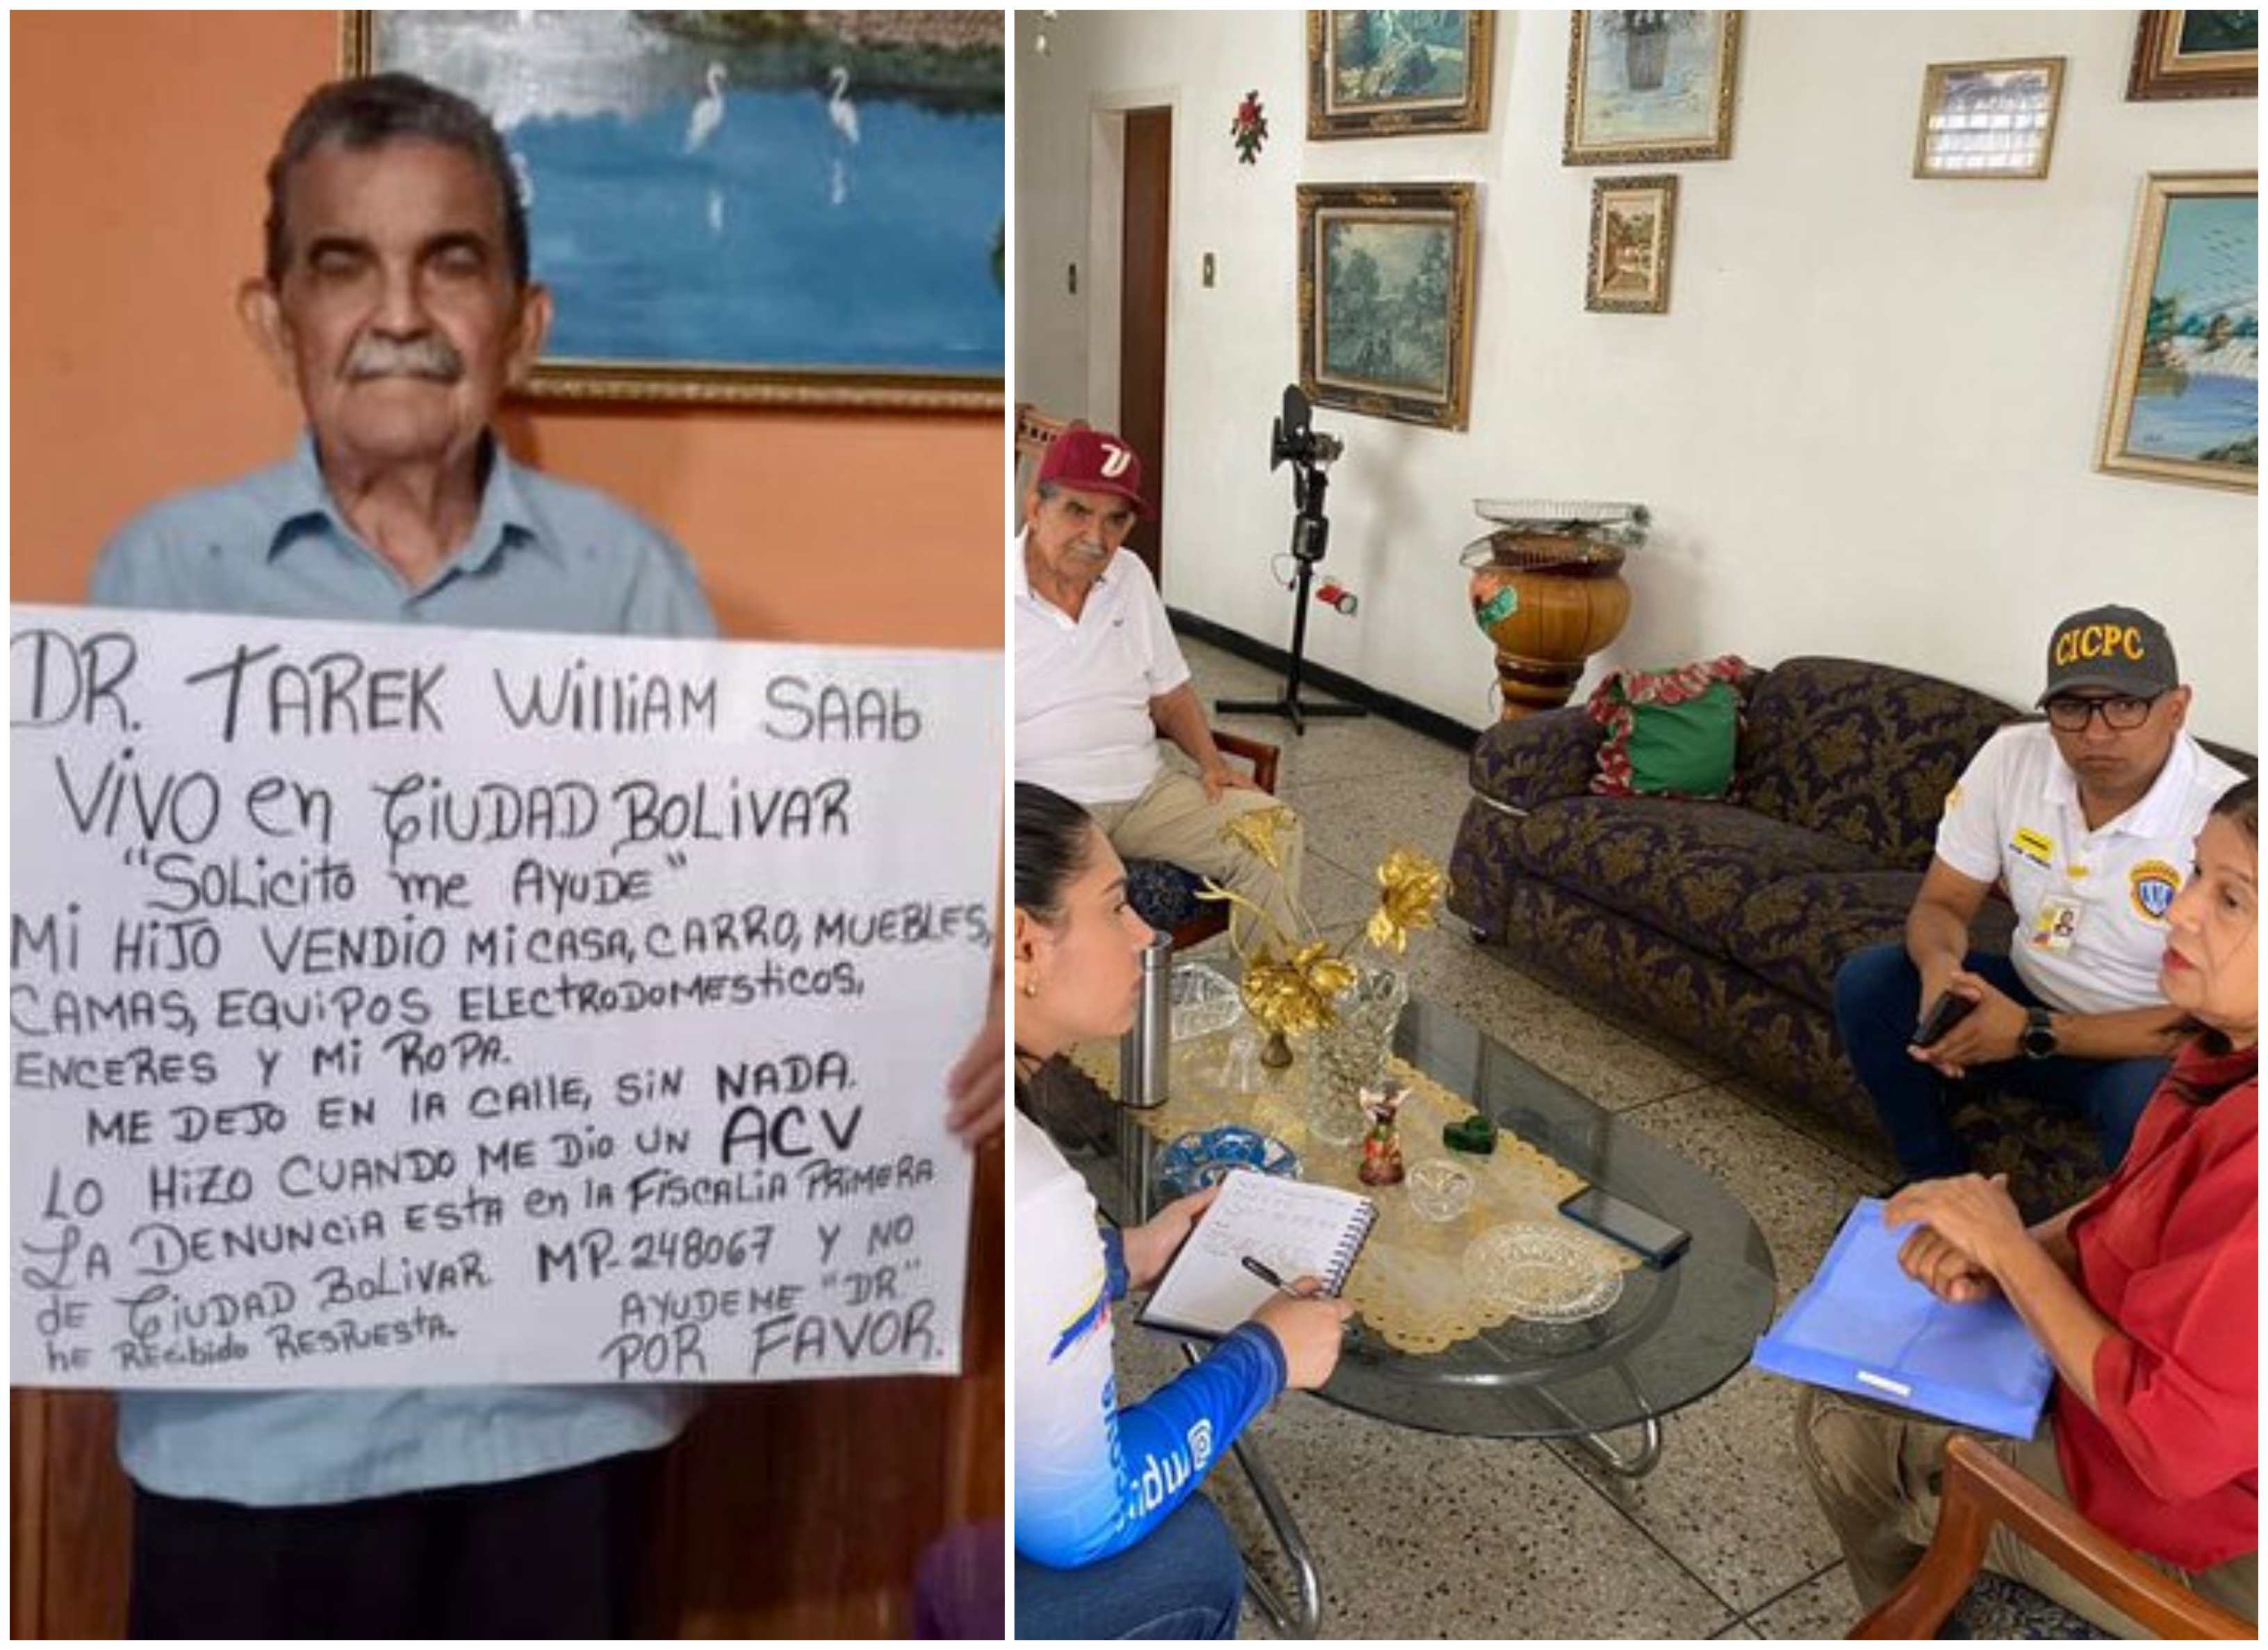 DR. TAREK WilliAM SAAb
ViVO en CiUDAD BOLiVAR
"SOLicito me AYUDE"
Mi HiJO VENDiO Mi CASA, CARRO, MUEBLES,
CAMAS, EQUiPOS ELECtRODOMEStiCOS,
ENCERES Y Mi ROPA.
ME DEJO EN lA CAllE, SiN NADA.
LO HiZO CUANDO ME Dio UN ACV
LA DENUNCiA ESTA en lA FiSCALiA PRiMERA
DE CiUDAD BOLiVAR MP-248067 Y NO
he REcibido RESPUEStA. AYUDEME "DR"
POR FAVOR.
V
CICPC